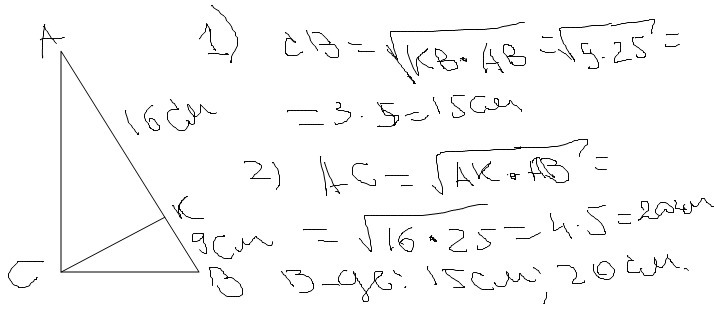 A
16 см
K
9 см
C
B
1) CB = √KB · AB = √9 · 25 =
= 3 · 5 = 15 см
2) AC = √AK · AB =
= √16 · 25 = 4 · 5 = 20 см
В-дь: 15 см; 20 см.